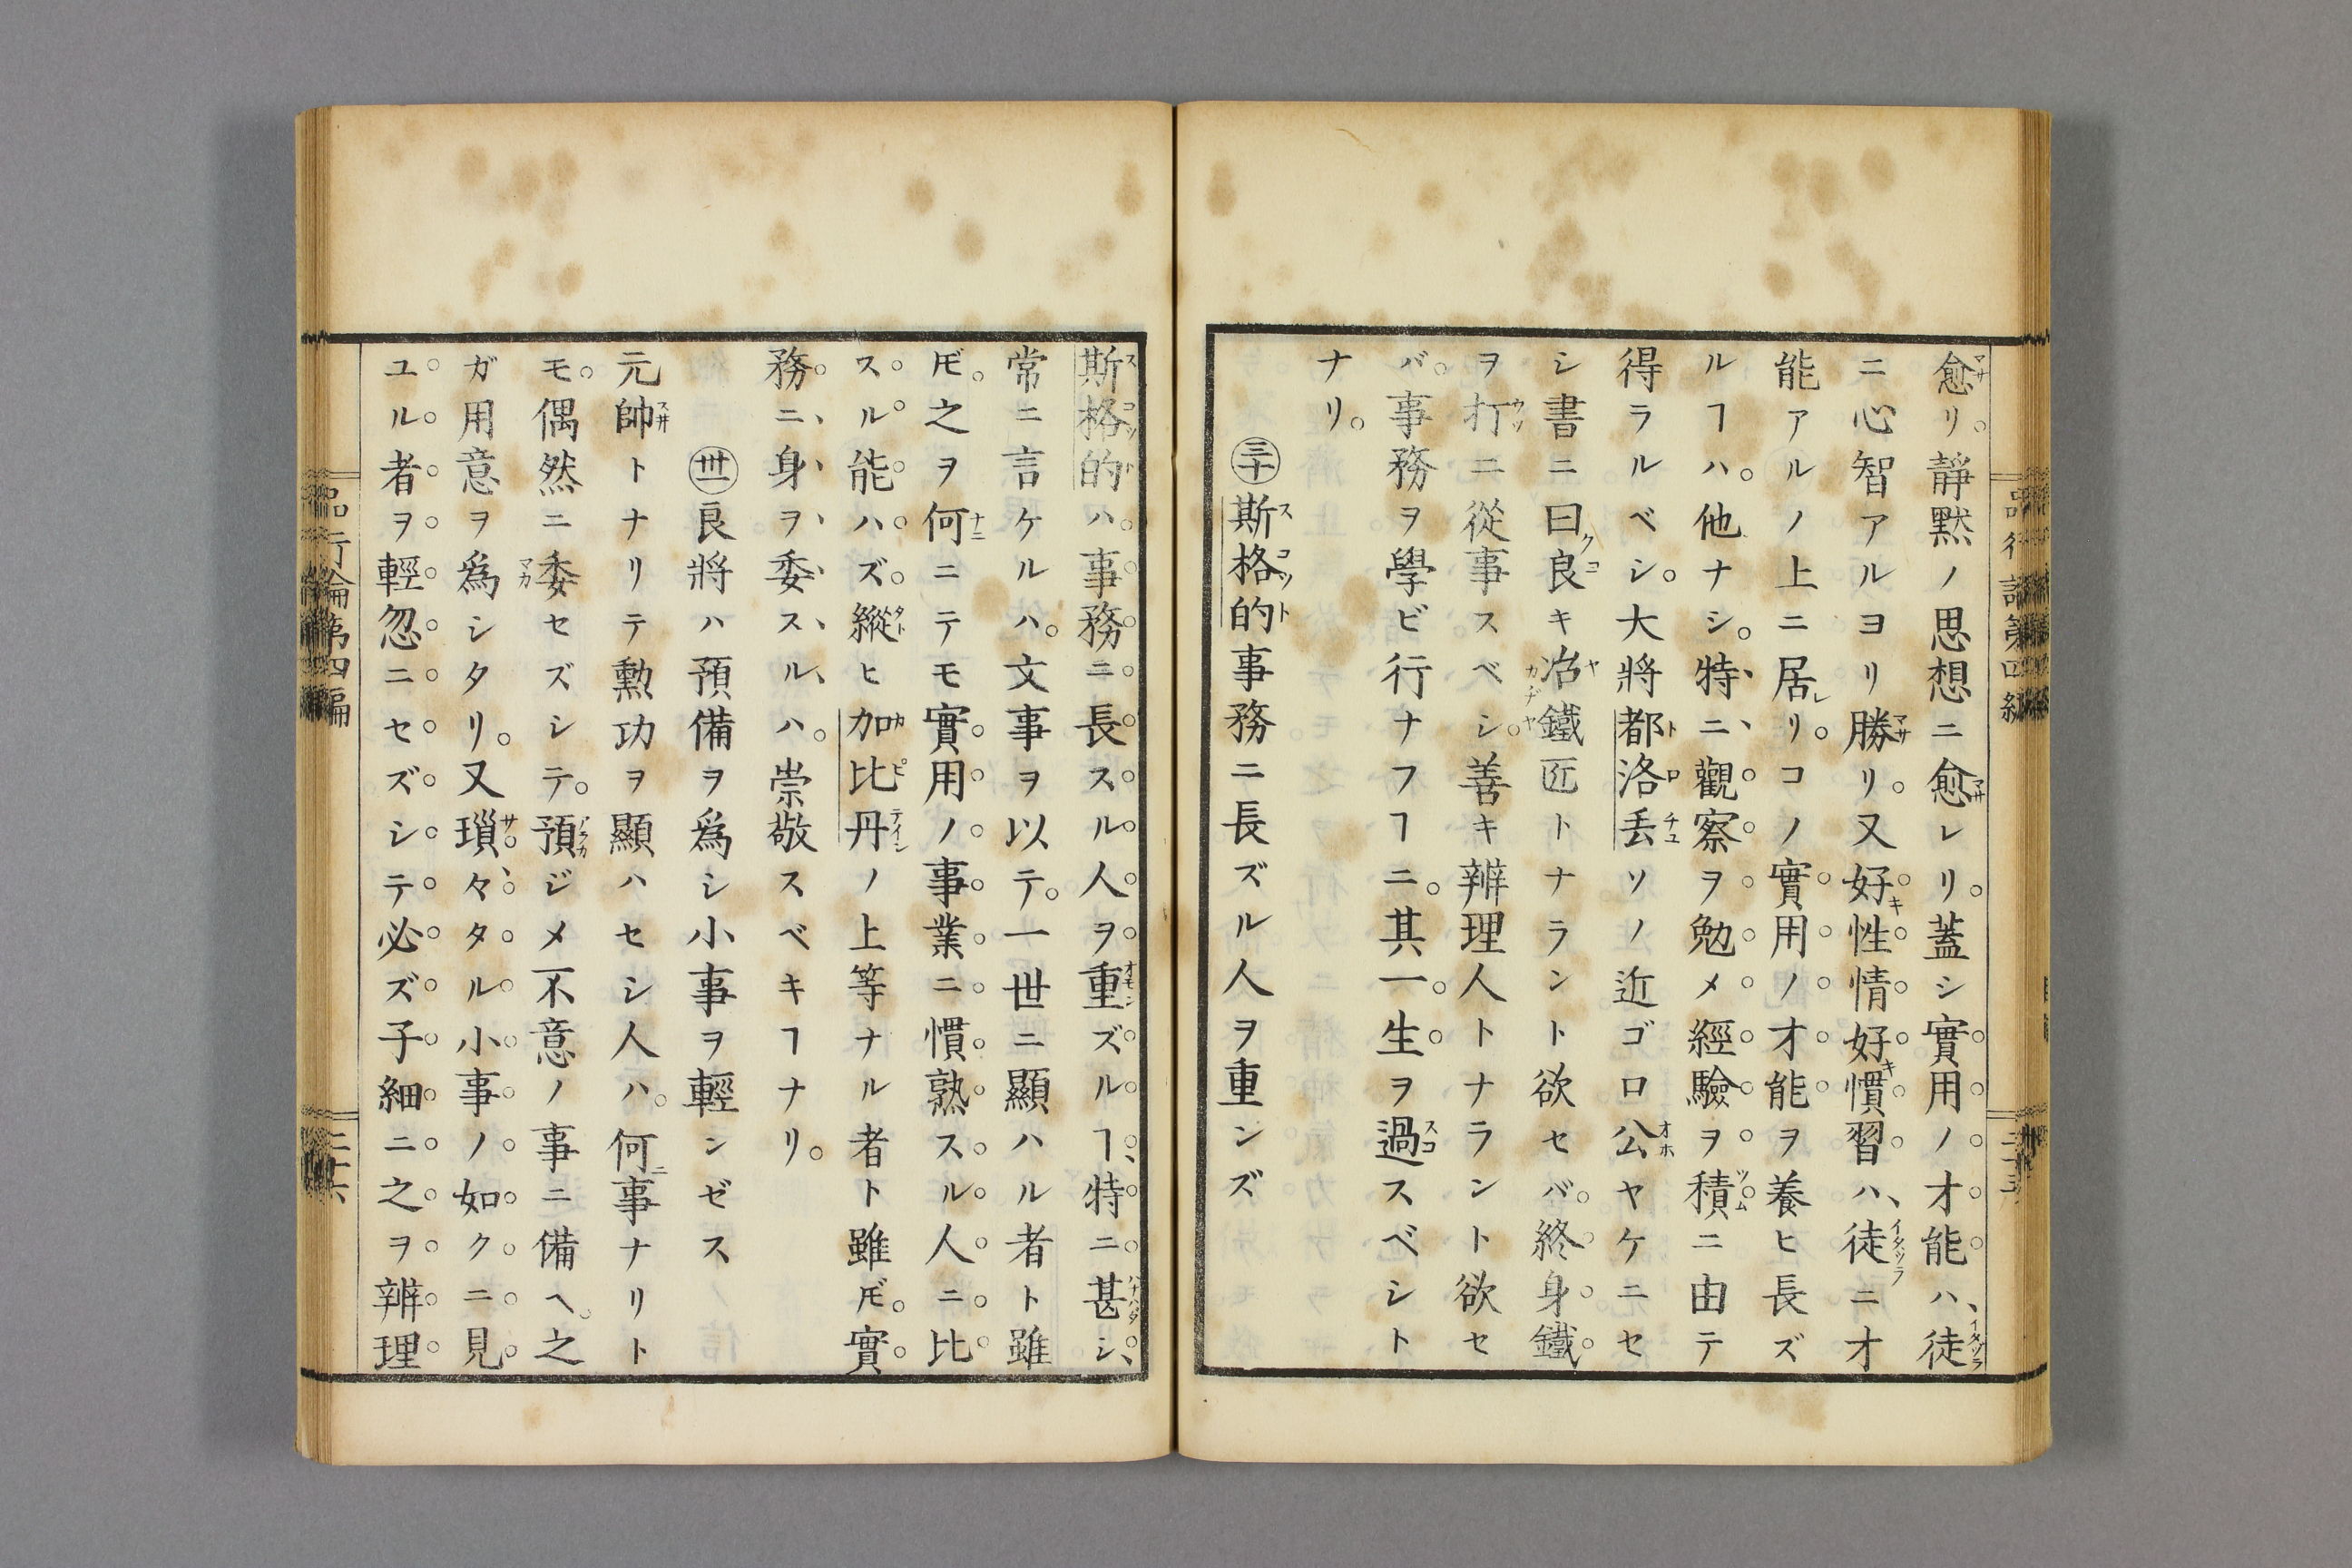 愈リ。靜黙ノ思想ニ愈レリ。蓋シ實用ノオ能ハ、徒
ニ心智アルヨリ勝リ。又好性情好慣習ハ、徒ニオ
能アルノ上ニ居リ。コノ實用ノオ能ヲ養ヒ長ズ
ルヿハ。他ナシ。特ニ觀察ヲ勉メ經驗ヲ積ニ由テ
得ラルベシ。大將都洛丢ソノ近ゴロ公ヤケニセ
シ書ニ曰良キ冶鐵匠トナラント欲セバ。終身鐵
ヲ打ニ從事スベシ。善キ辨理人トナラント欲セ
バ。事務ヲ學ビ行ナフヿニ。其一生ヲ過スベシト
ナリ。
㊂十斯格的事務ニ長ズル人ヲ重ンズ
品行論第四編
斯格的ハ。事務ニ長スル人ヲ重ズルヿ、特ニ甚シ、
常ニ言ケルハ。文事ヲ以テ。一世ニ顯ハル者ト雖
𪜈。之ヲ何ニテモ實用ノ事業ニ慣熟スル人ニ比
スル能ハズ。縱ヒ加比丹ノ上等ナル者ト雖𪜈。實
務ニ身ヲ委スルハ。崇敬スベキヿナリ。
卅一良將ハ預備ヲ爲シ小事ヲ輕シゼス
元帥トナリテ勲功ヲ顯ハセシ人ハ。何事ナリト
モ。偶然ニ委セズシテ。預ジメ不意ノ事ニ備ヘ。之
ガ用意ヲ爲シタリ。又瑣々タル小事ノ如クニ見
ユル者ヲ輕忽ニセズシテ必ズ子細ニ之ヲ辨理
品行論第四編
二十六